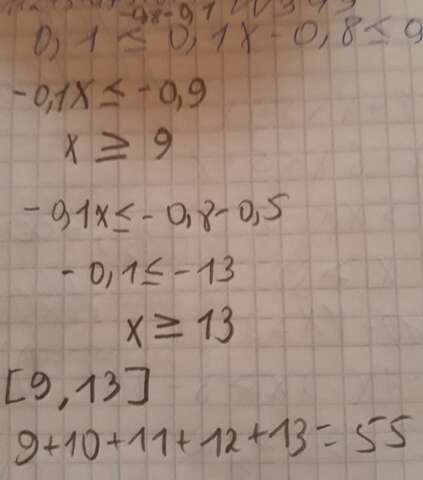 -0,8-0,1
0,1 ≤ 0,1x - 0,8 ≤ 0
-0,1x ≤ -0,9
x ≥ 9
-0,1x ≤ -0,8-0,5
-0,1 ≤ -13
x ≥ 13
[9,13]
9+10+11+12+13=55